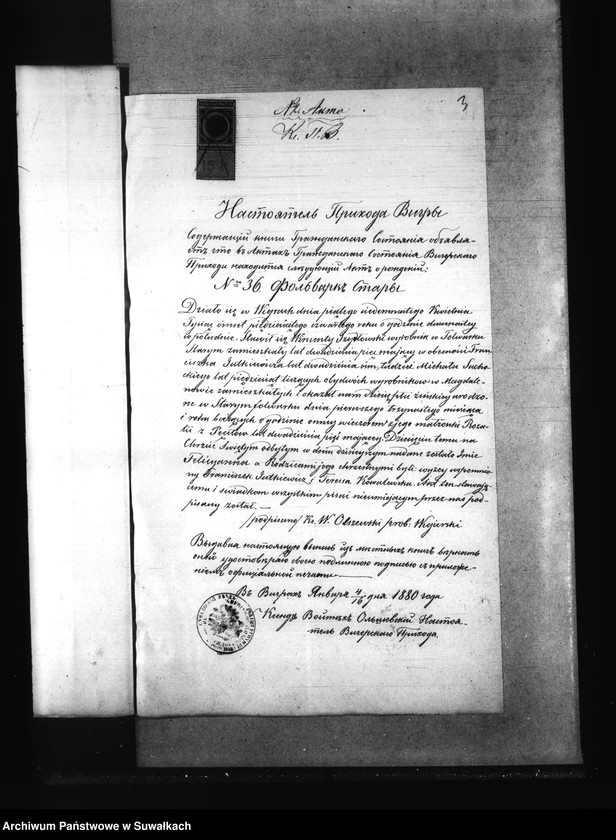 3
Къ Акта
Кс. П. В.
Настоятель Прихода Вигры
Содержащій книги Гражданскаго Состоянія объявля-
етъ что въ Актахъ Гражданскаго Состоянія Вигерскаго
Прихода находится слѣдующій Актъ о рожденіи:
№ 36 Фольваркъ Стары
Działo się w Wigrach dnia piątego siedemnastego Kwietnia
Tysiąc ośmset piędziesiątego czwartego roku o godzinie dwunastej
w południe. Stawił się Wincenty Szydłowski wyrobnik w Folwarku
Starym zamieszkały lat dwadzieścia pięć mający w obecności Fran-
ciszka Jutkiewicza lat dwadzieścia ośm, tudzież Michała Sucho-
ckiego lat piędziesiąt liczących obydwóch wyrobników w Magdale-
nowie zamieszkałych i okazał nam dziecię płci żeńskiej urodzo-
ne w Starym folwarku dnia pierwszego trzynastego miesiąca
i roku bieżących o godzinie ósmej wieczorem z jego małżonki Roza-
lii z lat dwadzieścia pięć mającej. Dziecięciu temu na
Chrzcie Świętym odbytym w dniu dzisiejszym nadane zostało Imie
Felicyanna a Rodzicami jego chrzestnymi byli wyżej wspomnio-
ny Franciszek Jutkiewicz i Teresa Kowalewska. Akt ten stawają-
cemu i świadkom wszystkim pisać nieumiejącym przez nas pod-
pisany został.—
/podpisano/ Ks. W. Olszewski prob. Wigierski
Выдавая настоящую выпись изъ мѣстныхъ книгъ вѣрность
оной удостовѣряю своею подлинною подписью съ приложе-
ніемъ оффиціальной печати.—
Въ Виграхъ Января 4/16 дня 1880 года
Ксендзъ Войтехъ Ольшевскій Настоя-
тель Вигерскаго Прихода.
Archiwum Państwowe w Suwałkach